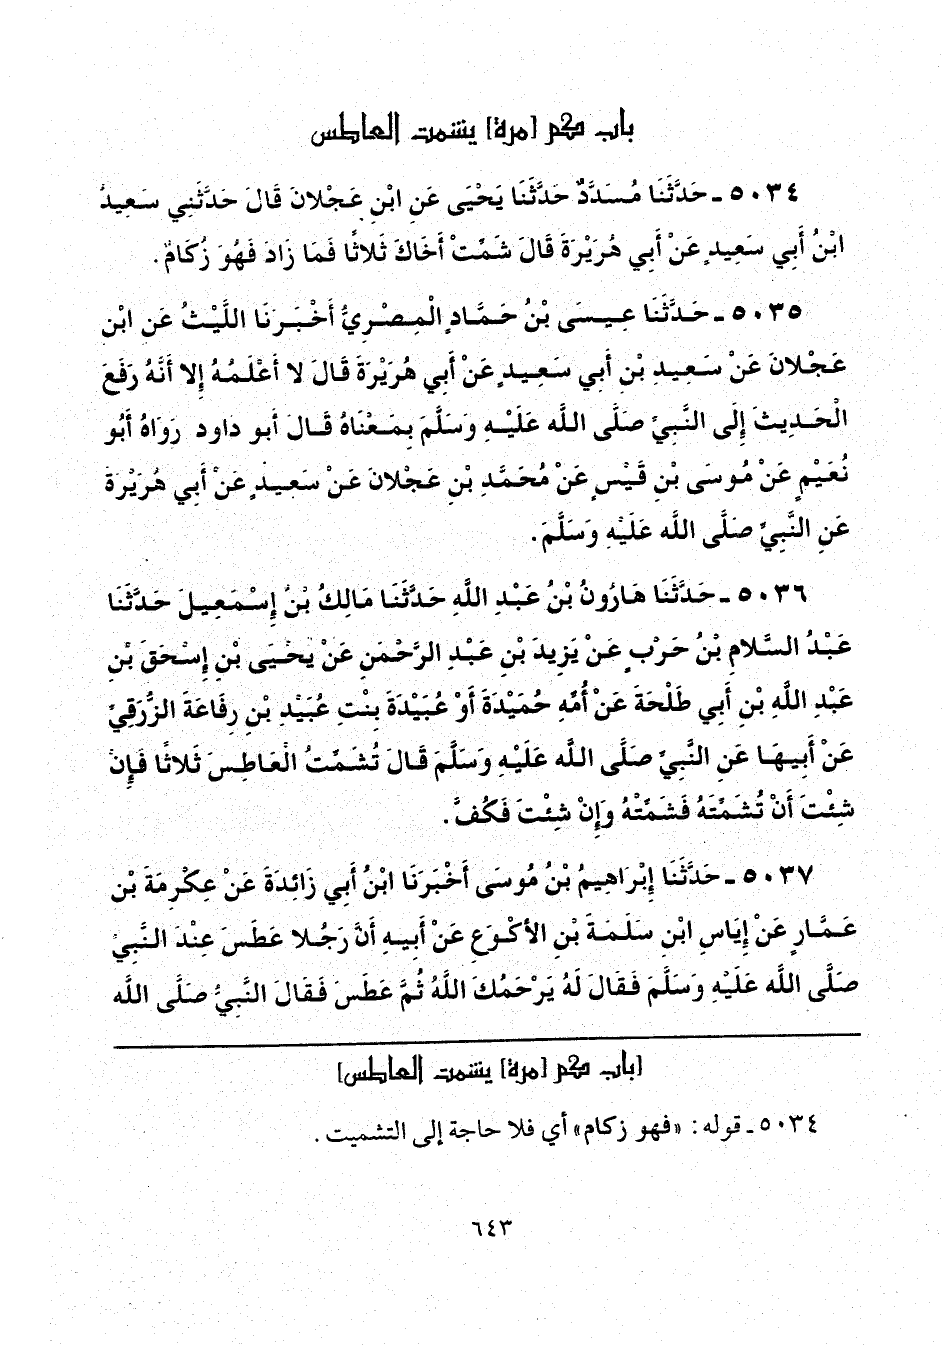 باب كم [مرة] يشمت العاطس
٥٠٣٤ ـ حَدَّثَنَا مُسَدَّدٌ حَدَّثَنَا يَحْيَى عَنِ ابْنِ عَجْلانَ قَالَ حَدَّثَنِي سَعِيدُ
ابْنُ أَبِي سَعِيدٍ عَنْ أَبِي هُرَيْرَةَ قَالَ شَمِّتْ أَخَاكَ ثَلاثًا فَمَا زَادَ فَهُوَ زُكَامٌ .
٥٠٣٥ ـ حَدَّثَنَا عِيسَى بْنُ حَمَّادٍ الْمِصْرِيُّ أَخْبَرَنَا اللَّيْثُ عَنِ ابْنِ
عَجْلانَ عَنْ سَعِيدِ بْنِ أَبِي سَعِيدٍ عَنْ أَبِي هُرَيْرَةَ قَالَ لا أَعْلَمُهُ إِلا أَنَّهُ رَفَعَ
الْحَدِيثَ إِلَى النَّبِيِّ صَلَّى اللَّه عَلَيْهِ وَسَلَّمَ بِمَعْنَاهُ قَالَ أبو داود رَوَاهُ أَبُو
نُعَيْمٍ عَنْ مُوسَى بْنِ قَيْسٍ عَنْ مُحَمَّدِ بْنِ عَجْلانَ عَنْ سَعِيدٍ عَنْ أَبِي هُرَيْرَةَ
عَنِ النَّبِيِّ صَلَّى اللَّه عَلَيْهِ وَسَلَّمَ .
٥٠٣٦ ـ حَدَّثَنَا هَارُونُ بْنُ عَبْدِ اللَّهِ حَدَّثَنَا مَالِكُ بْنُ إِسْمَعِيلَ حَدَّثَنَا
عَبْدُ السَّلامِ بْنُ حَرْبٍ عَنْ يَزِيدَ بْنِ عَبْدِ الرَّحْمَنِ عَنْ يَحْيَى بْنِ إِسْحَقَ بْنِ
عَبْدِ اللَّهِ بْنِ أَبِي طَلْحَةَ عَنْ أُمِّهِ حُمَيْدَةَ أَوْ عُبَيْدَةَ بِنْتِ عُبَيْدِ بْنِ رِفَاعَةَ الزُّرَقِيِّ
عَنْ أَبِيهَا عَنِ النَّبِيِّ صَلَّى اللَّه عَلَيْهِ وَسَلَّمَ قَالَ تُشَمِّتُ الْعَاطِسَ ثَلاثًا فَإِنْ
شِئْتَ أَنْ تُشَمِّتَهُ فَشَمِّتْهُ وَإِنْ شِئْتَ فَكُفَّ .
٥٠٣٧ ـ حَدَّثَنَا إِبْرَاهِيمُ بْنُ مُوسَى أَخْبَرَنَا ابْنُ أَبِي زَائِدَةَ عَنْ عِكْرِمَةَ بْنِ
عَمَّارٍ عَنْ إِيَاسِ ابْنِ سَلَمَةَ بْنِ الأَكْوَعِ عَنْ أَبِيهِ أَنَّ رَجُلا عَطَسَ عِنْدَ النَّبِيِّ
صَلَّى اللَّه عَلَيْهِ وَسَلَّمَ فَقَالَ لَهُ يَرْحَمُكَ اللَّهُ ثُمَّ عَطَسَ فَقَالَ النَّبِيُّ صَلَّى اللَّه
[باب كم [مرة] يشمت العاطس]
٥٠٣٤ ـ قوله: «فهو زكام» أي فلا حاجة إلى التشميت .
٦٤٣